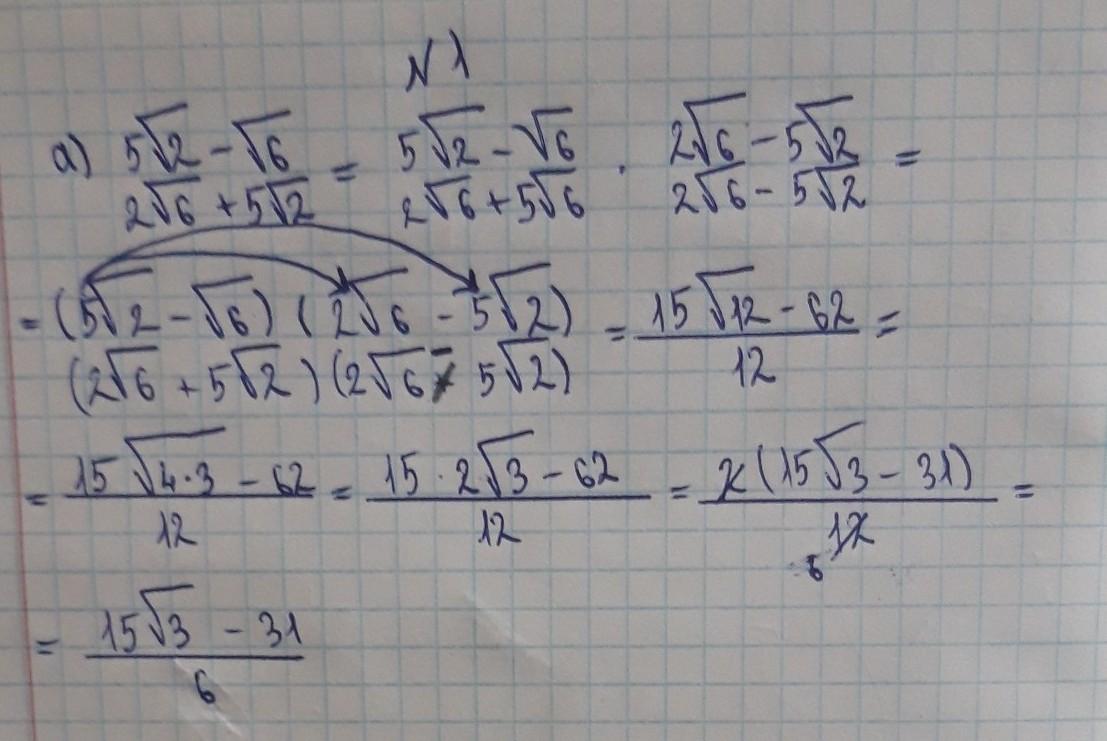 N 1
а) (5√2 - √6)/(2√6 + 5√2) = (5√2 - √6)/(2√6 + 5√6) · (2√6 - 5√2)/(2√6 - 5√2) =
= (5√2 - √6)(2√6 - 5√2)/(2√6 + 5√2)(2√6 - 5√2) = (15√12 - 62)/12 =
= (15√4·3 - 62)/12 = (15·2√3 - 62)/12 = 2(15√3 - 31)/12 6 =
= (15√3 - 31)/6